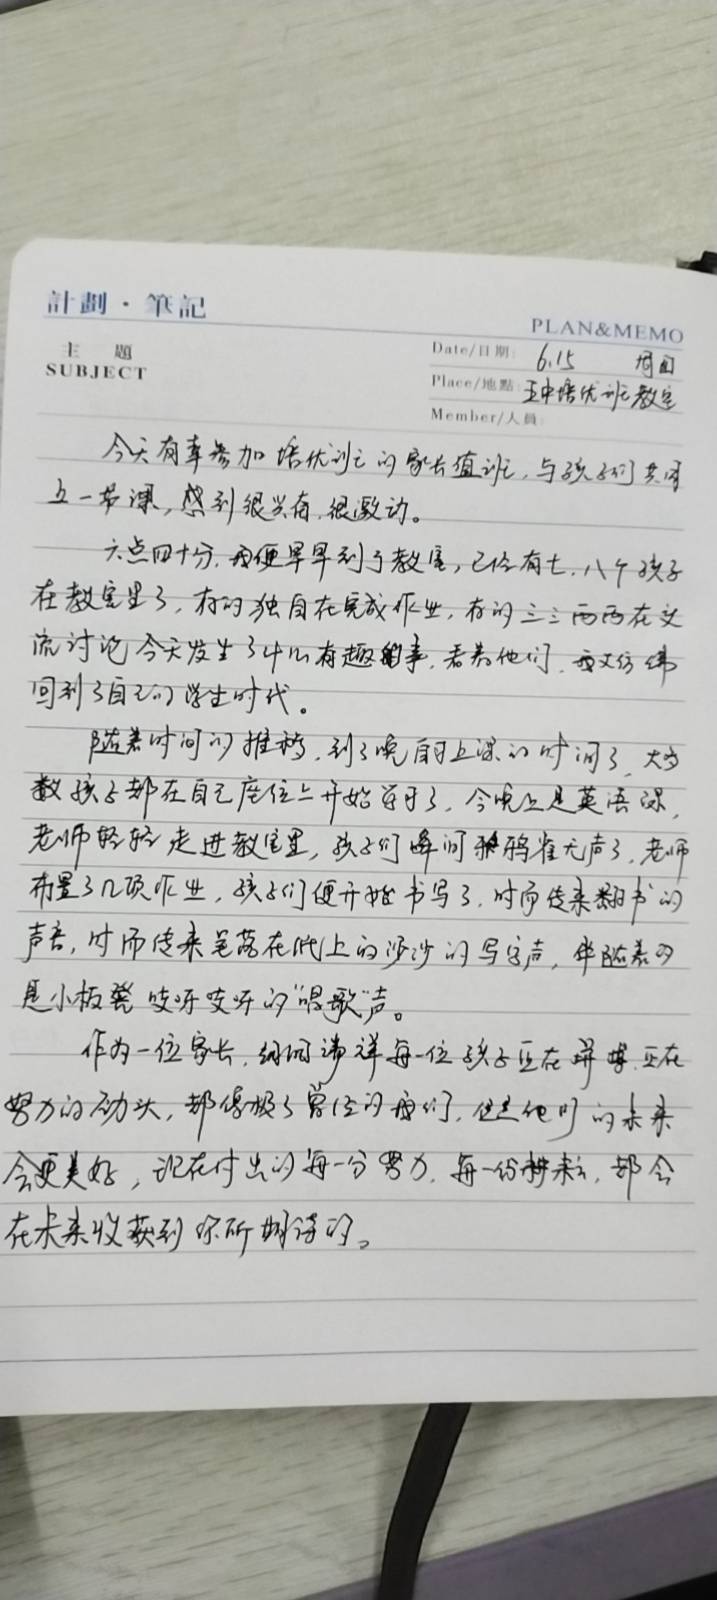 計劃·筆記
PLAN&MEMO
主 題
SUBJECT
Date/日期: 6.15 周四
Place/地點: 王中培优班教室
Member/人員:
今天有幸参加培优班的家长值班,与孩子们共同
上一节课,感到很兴奋,很激动。
六点四十分,我便早早到了教室,已经有七、八个孩子
在教室里了,有的独自在完成作业,有的三三两两在交
流讨论今天发生了什么有趣的事,看着他们,我又仿佛
回到了自己的学生时代。
随着时间的推移,到了晚自习上课的时间了,大多
数孩子都在自己座位上开始学习了,今晚上是英语课,
老师轻轻走进教室里,孩子们瞬间鸦雀无声了,老师
布置了几项作业,孩子们便开始书写了,时而传来翻书的
声音,时而传来笔落在纸上的沙沙的写字声,伴随着的
是小板凳吱呀吱呀的“唱歌”声。
作为一位家长,细细端详每一位孩子正在拼搏,正在
努力的劲头,都像极了曾经的我们,但是他们的未来
会更美好,现在付出的每一分努力,每一份耕耘,都会
在未来收获到你所期待的。